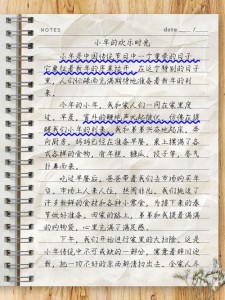 NOTES
date
小年的欢乐时光
小年是中国传统节日中一个重要的日子,
它象征着新年的序幕拉开。在这个特别的日子
里,人们怀着满心期待地准备着新年的到
来。
今年的小年,我和家人们一同在家里度
过。早晨,窗外的鞭炮声此起彼伏,仿佛在提
醒我们小年的到来。我和弟弟兴奋地起床,奔
向厨房,妈妈已经在准备早餐,桌上摆满了各
式各样的食物,有年糕、糖瓜、饺子等,香气
扑鼻而来。
吃过早餐后,爸爸带着我们去市场购买年
货。市场上人来人往,热闹非凡。我们挑选了
许多新鲜的食材和各种小零食,为接下来的春
节做好准备。回家的路上,弟弟和我提着满满
的购物袋,心里充满了满足感。
下午,我们开始进行家里的大扫除,这是
小年传统中不可或缺的一部分,寓意着辞旧迎
新,把一切不好的东西都清扫出去。全家人齐